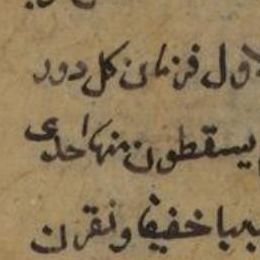 لاول فزمان كل دور
يسقطون منها احدى
خفيفا ونقرن